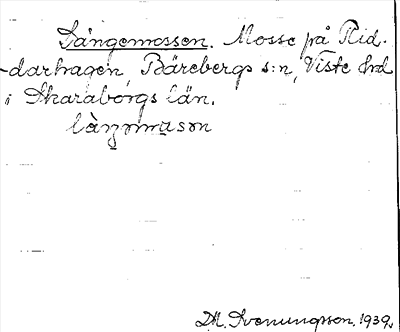 Långemossen. Mosse på Rid-
darhagen, Bärebergs s:n, Viste hrd
i Skaraborgs län.
làŋəmusən
D.H. Svenungsson. 1939.